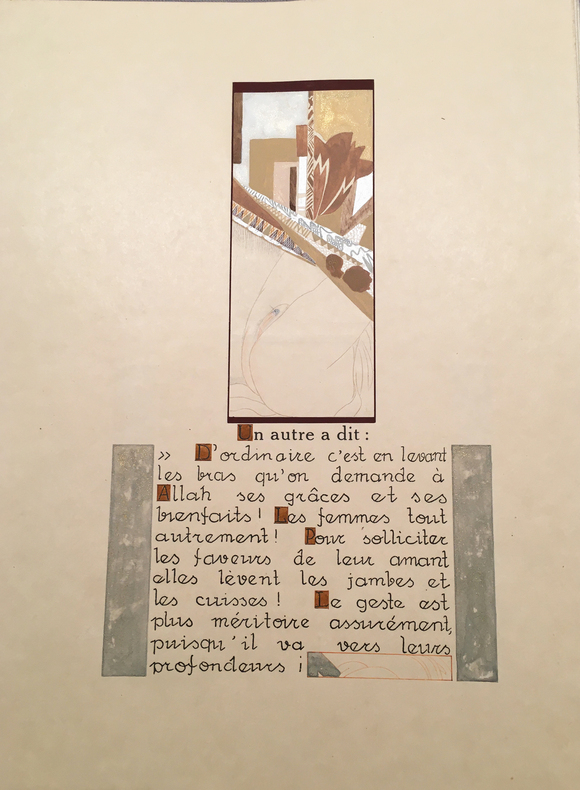 Un autre a dit :
» D'ordinaire c'est en levant
les bras qu'on demande à
Allah ses grâces et ses
bienfaits ! Les femmes tout
autrement ! Pour solliciter
les faveurs de leur amant
elles lèvent les jambes et
les cuisses ! Le geste est
plus méritoire assurément,
puisqu'il va vers leurs
profondeurs !